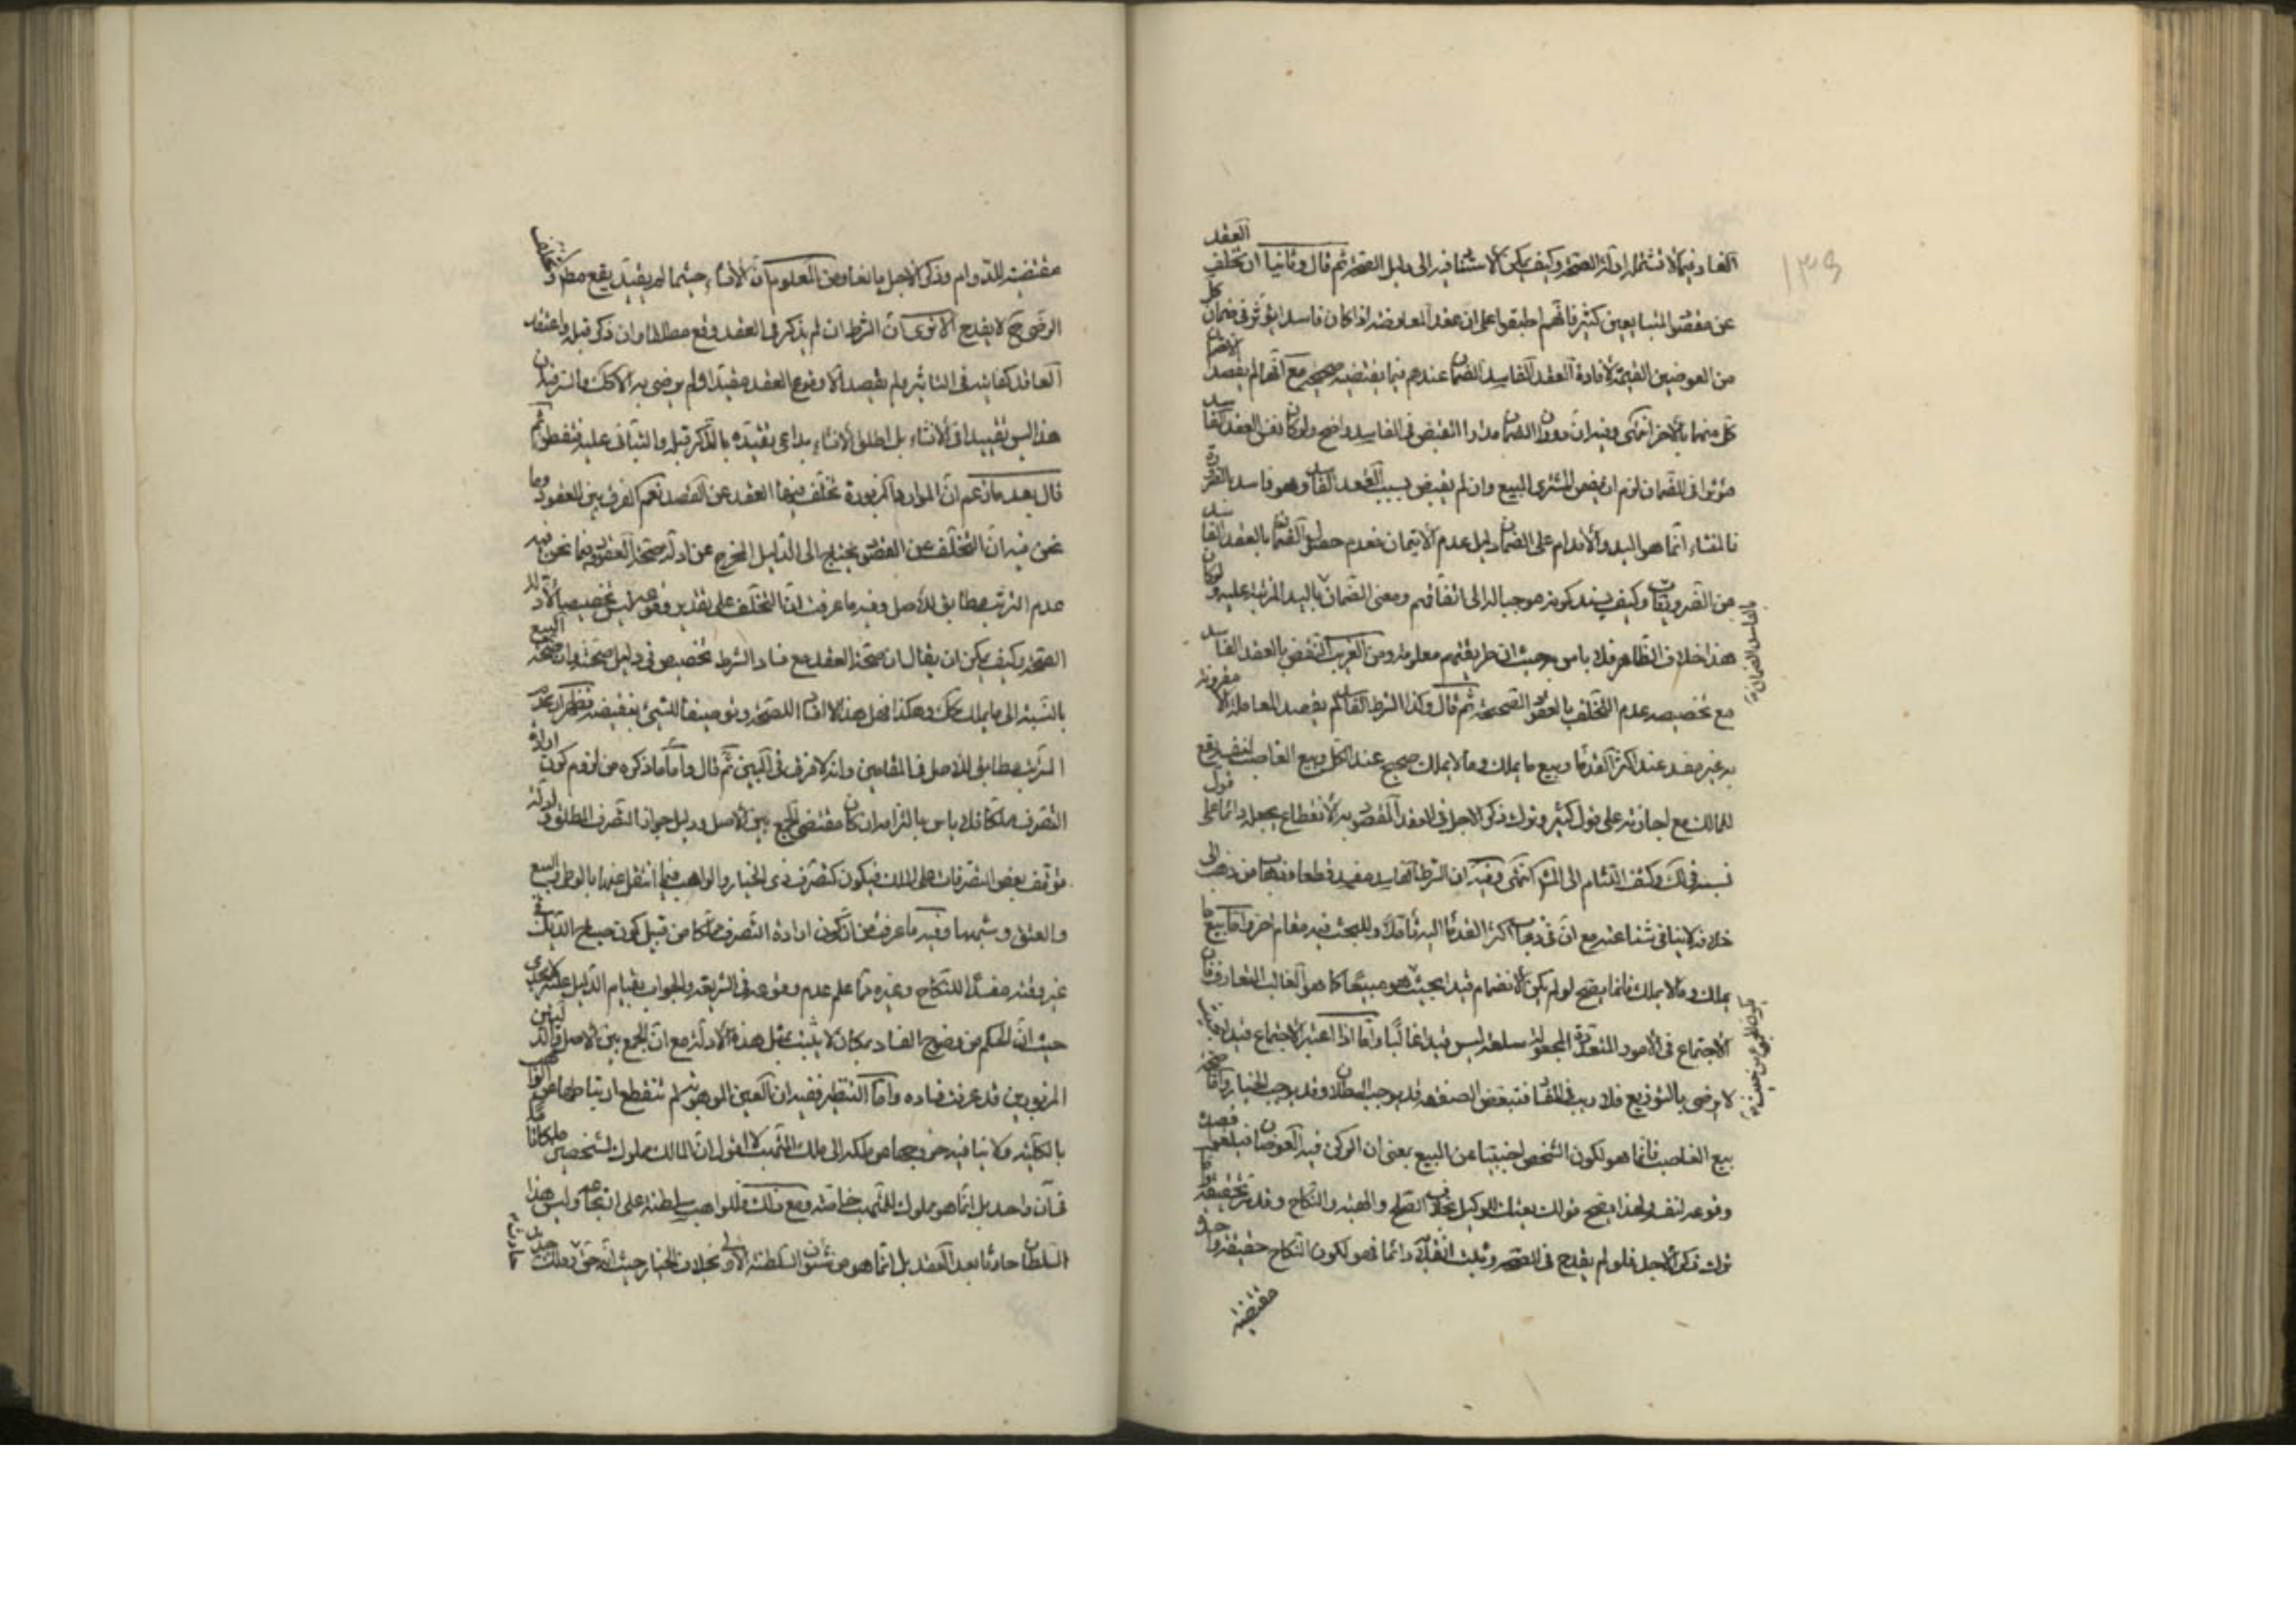 الفساد فيما لا تشمله ادلة الصحة وكيف يمكن الاستناد فيه الى دليل الصحة ثم قال وثانيا ان تخلف العقد
عن مقصود المتبايعين كثير فانهم اطبقوا على ان عقد المعاوضة اذا كان فاسدا يؤثر في ضمان كل
من العوضين القيمة لافادة العقد الفاسد الضمان عندهم فيما يقتضيه صحيحه مع انهما لم يقصدا الا ضمان
كل منهما بالآخر انتهى وفيه ان دوران الضمان مدار القبض في الفاسد واضح ولو كان نفس العقد الفاسد
مؤثرا في الضمان لزم ان يضمن المشتري المبيع وان لم يقبض بسبب العقد الفاسد وهو فاسد بالضرورة
فالمنشاء انما هو اليد والاقدام على الضمان دليل عدم الايتمان فعدم حصول الضمان بالعقد الفاسد
من الضروريات وكيف يستند كونه موجبا له الى اتفاقهم ومعنى الضمان باليد المترتبة عليه ولو كان
هذا خلاف الظاهر فلا باس به حيث ان طريقتهم معلومة ومن الغريب النقض بالعقد الفاسد
مع تخصيصه عدم التخلف بالعقود الصحيحة ثم قال وكذا الشرط الفاسد لم يقصد المعاملة الا مقرونة
به غير مفسد عند اكثر القدماء وبيع ما يملك وما لا يملك صحيح عند الكل وبيع الغاصب لنفسه يقع
للمالك مع اجازته على قول كثير وترك ذكر الاجل في العقد المقصود به الانقطاع يجعله دائما على قول
نسبه في لك وكشف اللثام الى المشهور انتهى وفيه ان الشرط الفاسد مفسد قطعا وذهاب من ذهب الى
خلافه لا ينافي شناعته مع ان في ذهاب اكثر القدماء اليه تأملا وللبحث فيه مقام آخر واما بيع ما
يملك وما لا يملك فانما يصح لو لم يكن الانضمام قيدا بحيث هو مبيعا كما هو الغالب المتعارف فان
الاجتماع في الامور المتعددة المجعولة سلعة ليس قيدا غالبا واما اذا اعتبر الاجتماع قيدا
لا يرضى بالتوزيع فلا ريب في الفساد فتبعض الصفقة قد يوجب البطلان وقد يوجب الخيار واما صحة
بيع الغاصب فانما هو لكون الشخص اجنبيا عن البيع بمعنى ان الركن فيه العوضان فيلغو قصد
وقوعه لنفسه ولهذا يصح قولك بعتك للوكيل بخلاف الصلح والهبة والنكاح وقد مر تحقيقه واما
ترك ذكر الاجل فلو لم يقدح في الصحة ويثبت انقلابه دائما فهو لكون النكاح حقيقة واحدة
مقتضية
مقتضية للدوام وذكر الاجل مانعا ومن المعلوم ان الانشاء حيثما لم يقيد يقع مطلقا
الرضى ح لا يقدح الا ترى ان الشرط ان لم يذكر في العقد وقع مطلقا وان ذكر قبله واعتقد
العاقد كفايته في التاثير ولم يقصد الا وقوع العقد مقيدا ولم يرض به الا كك والسر فيه ان
هذا ليس تقييدا في الانشاء بل اطلق الانشاء بداعي تقيده بالذكر قبله والتباني عليه فتفطن ثم
قال بعد ما زعم ان الموارد المزبورة تخلف فيها العقد عن القصد نعم الفرق بين العقود وما
نحن فيه ان التخلف عن القصود يحتاج الى الدليل المخرج عن ادلة صحة العقود وفيما نحن فيه
عدم الترتب مطابق للاصل وفيه ما عرفت ان التخلف على تقدير وقوعه ليس تخصيصا لادلة
الصحة وكيف يمكن ان يقال ان صحة العقد مع فساد الشرط تخصيص في دليل صحته وان صحة البيع
بالنسبة الى ما يملك كك وهكذا
الترتب مطابق للاصل في المقامين وانه لا فرق في البين ثم قال واما ما ذكره من لزوم كون ارادة
التصرف مملكا فلا باس بالتزامه ان كان مقتضى الجمع بين الاصل ودليل جواز التصرف المطلق وادلة
توقف بعض التصرفات على الملك فيكون كتصرف ذى الخيار والواهب فيما انتقل عنهما بالوطى والبيع
والعتق وشبهها وفيه ما عرفت من ان كون ارادة التصرف مملكا من قبيل كون صياح الديك في
غير وقته مفسدا للنكاح وغيره مما علم عدم وقوعه في الشريعة والجواب بقيام الدليل عليه لا يجدى
حيث ان الحكم من وضوح الفساد بمكان لا يثبت بمثل هذه الادلة مع ان الجمع بين الاصل والدليلين
المزبورين قد عرفت فساده واما التنظير ففيه ان العين الموهوبة لم تنقطع ارتباطها عن الواهب
بالكلية ولا ينافيه خروجها من ملكه الى ملك المتهب لا اقول ان المالك مملوك لشخصين ملكا تاما
في آن واحد بل انما هو مملوك للمتهب خاصة ومع ذلك فللواهب سلطنة على انتزاعه وليس هذا
السلطان حادثا بعد العقد بل انما هو من شئون السلطنة الاولى بخلاف الخيار حيث انه حق